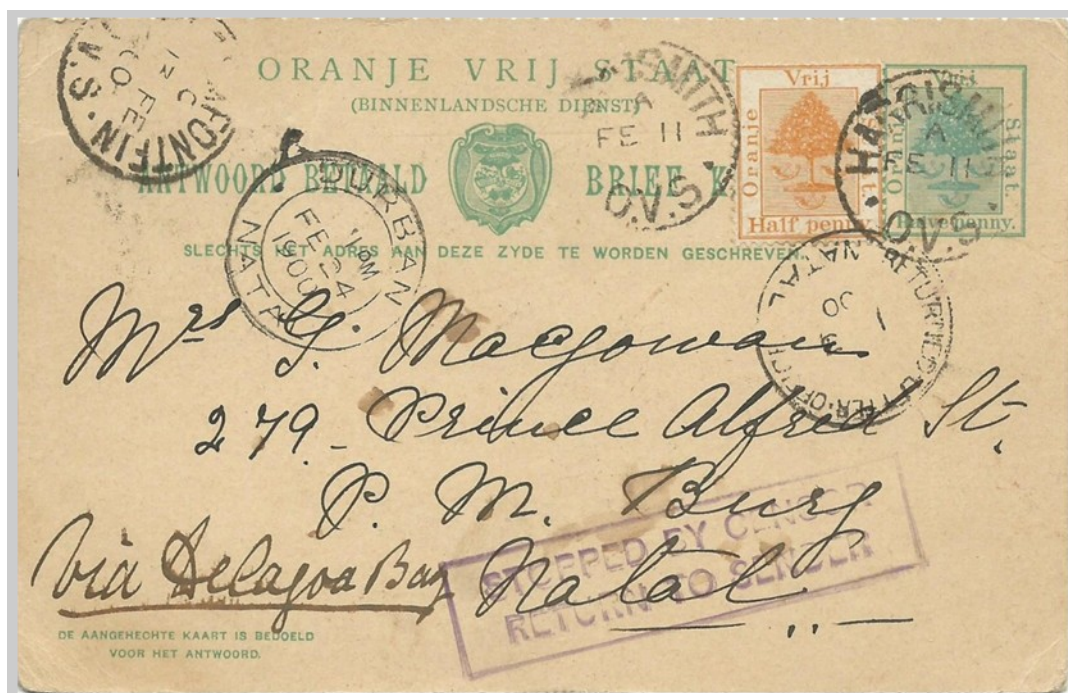 ORANJE VRIJ STAAT
(BINNENLANDSCHE DIENST)
ANTWOORD BETAALD BRIEF K
SLECHTS HET ADRES AAN DEZE ZYDE TE WORDEN GESCHREVEN.
Vrij
Oranje
Half penny.
Vrij
Staat.
Halve penny.
FONTEIN
FE
V.S.
SMITH
FE 11
O.V.S.
HARRISMITH
A
FE 11
O.V.S.
DURBAN
11 PM
FE 24
1900
NATAL
RETURNED LETTER OFFICE
NATAL
Mrs G. Macgowan
279 - Prince Alfred St.
P. M. Burg
Natal
Via Delagoa Bay
STOPPED BY CENSOR
RETURN TO SENDER
DE AANGEHECHTE KAART IS BEDOELD
VOOR HET ANTWOORD.